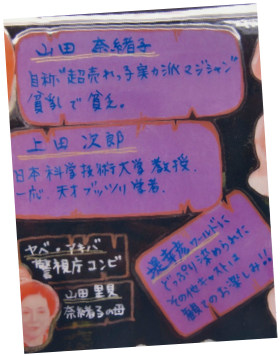 山田 奈緒子
自称"超売れっ子実力派マジシャン"
貧乳で貧乏。
上田 次郎
日本科学技術大学教授。
一応、天才ブッツリ学者。
ヤベ・アキバ
警視庁コンビ
山田里見
奈緒子の母
堤幸彦ワールドに
どっぷり染められた
その他キャストは
観てのお楽しみ!!